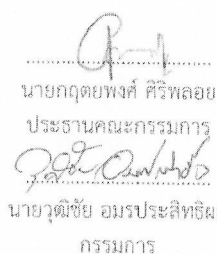 นายกฤตยพงศ์ ศิริพลอย
ประธานคณะกรรมการ
นายวุฒิชัย อมรประสิทธิผ
กรรมการ